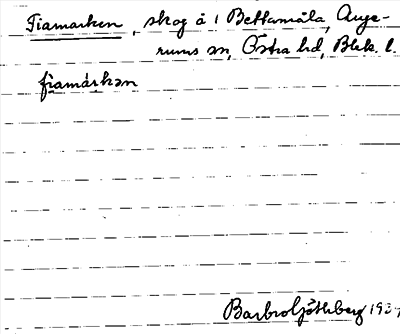 Fiamarken, skog å 1 Bettamåla, Auge-
rums sn, Östra hd, Blek. l.
fiamárkən
Barbro Götherberg 193